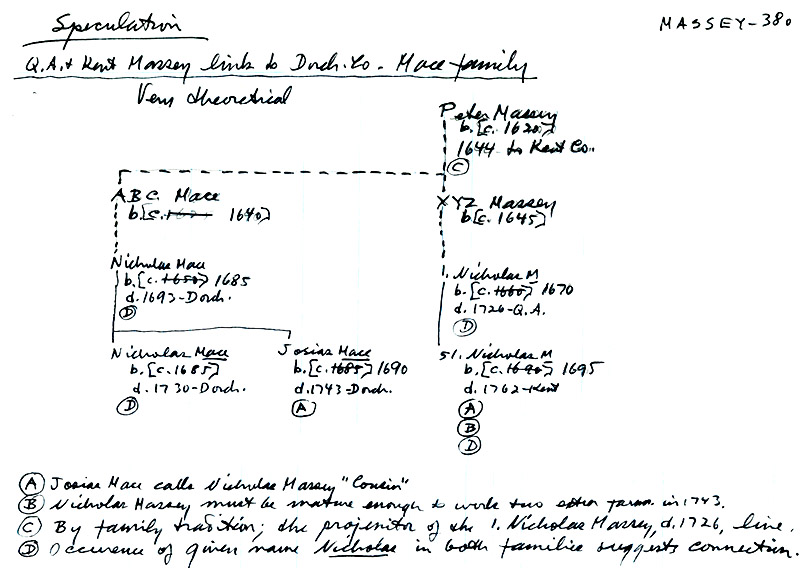 Speculation
MASSEY-380
Q.A. + Kent Massey link to Dorch. Co. Mace family
Very theoretical
Peter Massey
b. [c. 1620]
1644 to Kent Co.
C
ABC. Mace
b. [c. 1640]
XYZ Massey
b [c. 1645]
Nicholas Mace
b. [c. 1650] 1685
d. 1693-Dorch.
D
1. Nicholas M
b. [c. 1660] 1670
d. 1726-Q.A.
D
Nicholas Mace
b. [c. 1685]
d. 1730-Dorch.
D
Josias Mace
b. [c. 1685] 1690
d. 1743-Dorch.
A
51. Nicholas M
b. [c. 1690] 1695
d. 1762-Kent
A
B
D
A Josias Mace calls Nicholas Massey "Cousin"
B Nicholas Massey must be mature enough to work two farm in 1743.
C By family tradition; the projenitor of the 1. Nicholas Massey, d. 1726, line.
D Occurence of given name Nicholas in both families suggests connection.